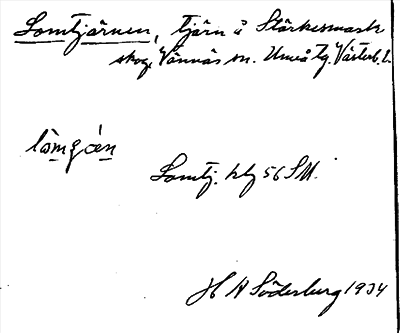 Lomtjärnen, tjärn å Stärkesmark
skog, Vännäs sn. Umeå tg. Västerb. l.
Lomtj. bl 56 SU.
H A Söderberg 1934